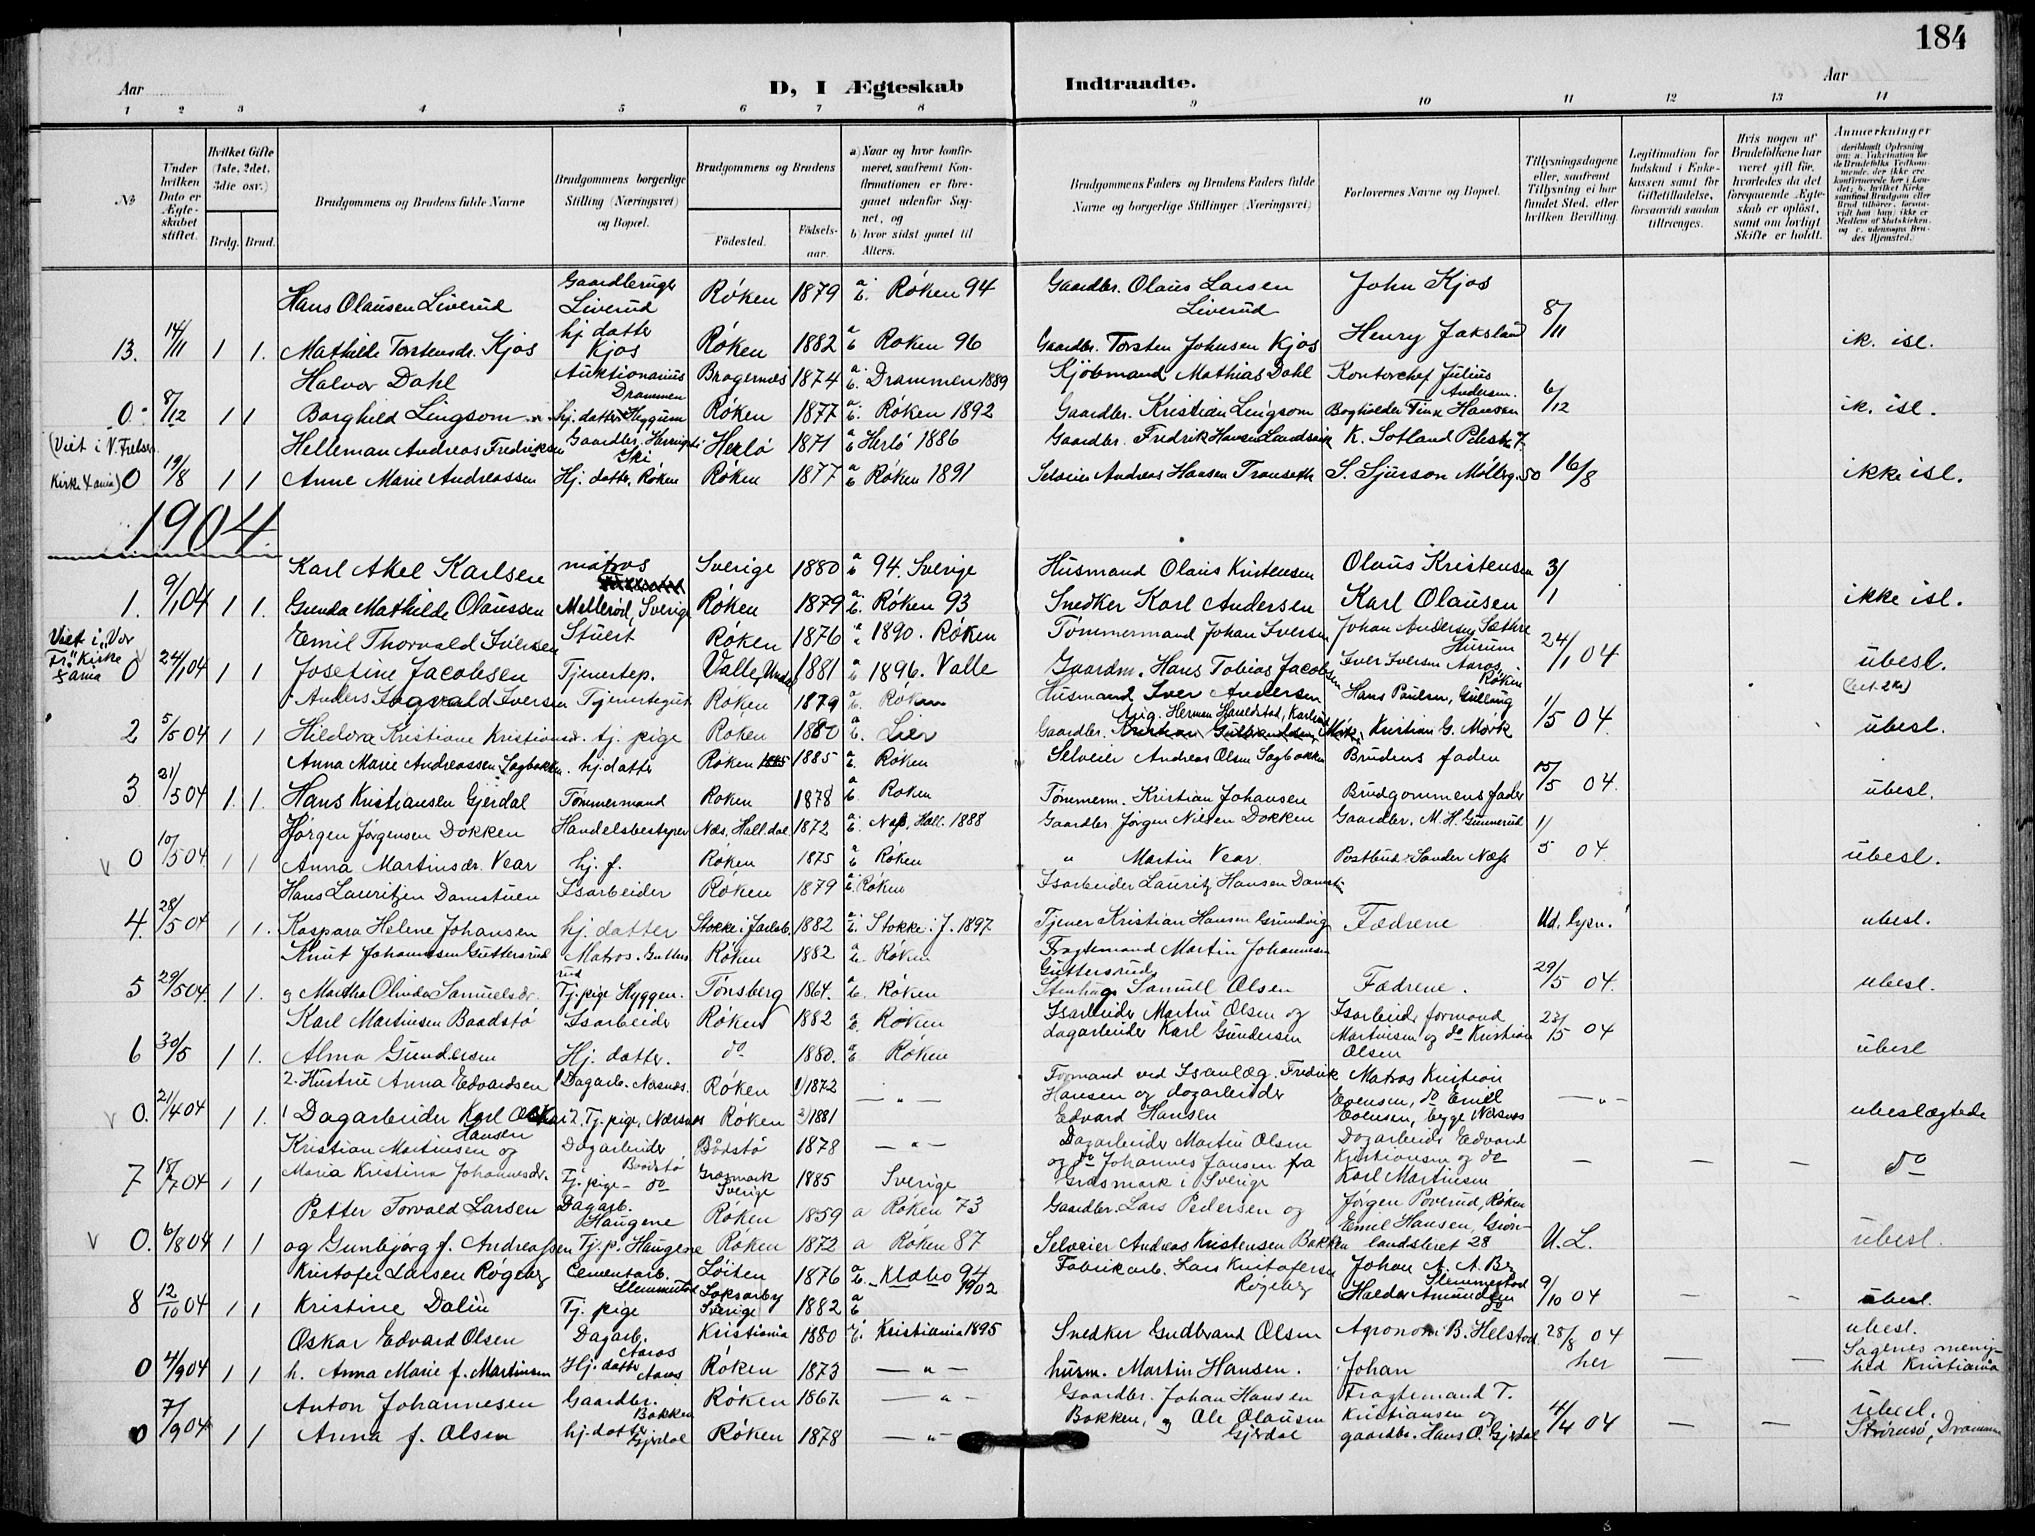 184
Aar
D, I Ægteskab Indtraadte.
Aar
1 2 3 4 5 6 7 8 9 10 11 12 13 14
No
Under hvilken Dato er Ægteskabet stiftet.
Hvilket Gifte (1ste, 2det, 3die osv.)
Brdg. Brud.
Brudgommens og Brudens fulde Navne
Brudgommens borgerlige Stilling (Næringsvei) og Bopæl.
Brudgommens og Brudens
Födested. Födselsaar.
a) Naar og hvor konfirmeret, saafremt Konfirmationen er foregaaet udenfor Sognet, og
b) hvor sidst gaaet til Alters.
Brudgommens Faders og Brudens Faders fulde Navne og borgerlige Stillinger (Næringsvei)
Forlovernes Navne og Bopæl.
Tillysningsdagene eller, saafremt Tillysning ei har fundet Sted, efter hvilken Bevilling.
Legitimation for Indskud i Enkekassen samt for Giftetilladelse, forsaavidt saadan tiltrænges.
Hvis nogen af Brudefolkene har været gift før, hvorledes da det foregaaende Ægteskab er oplöst, samt om lovligt Skifte er holdt.
Anmerkninger
Hans Olausen Liverud Gaardbruger Liverud Röken 1879 a b. Röken 94 Gaardbr. Olaus Larsen Liverud John Kjos
13. 14/11 1 1. Mathilde Torstensdr. Kjos hj. datter Kjos Röken 1882 a b Röken 96 Gaardbr. Torsten Johnsen Kjos Henry Jaksland 8/11 ik. isl.
Halvor Dahl Auktionarius Drammen Bragernes 1874 a b. Drammen 1889 Kjöbmand Mathias Dahl Kontorchef Julius Andersen.
0 8/12 1 1 Borghild Lingsom hj. datter Hyggum Röken 1877 a b. Röken 1892 Gaardbr. Kristian Lingsom Bogholder Finn Hansen 6/12 ik. isl.
(Viet i V. Frelsers Kirke Xania)
Helleman Andreas Fredriksen Gaardbr. Ski Herlö 1871 a b Herlö 1886 Gaardbr. Fredrik Hansen K. Sotland
0 19/8 1 1 Anne Marie Andreassen Hj. datter, Röken Röken 1877 a b Röken 1891 Selveier Andreas Hansen Transeth S. Sjurson Möllerg. 50 16/8 ikke isl.
1904.
Karl Akel Karlsen matros Sverige 1880 a b 94. Sverige Husmand Olaus Kristensen Olaus Kristensen
1. 9/1 04 1 1. Gunda Mathilde Olaussen Mellerød, Sverige Röken 1879 a b. Röken 93 Snedker Karl Andersen Karl Olausen 3/1 ikke isl.
Viet i "Vor Fr." Kirke Xania
Emil Thorvald Iversen Stuert Röken 1876 a 1890. Röken Tömmermand Johan Iversen Johan Andersen Sæthre Hurum
0 24/1 04 1 1 Josefine Jacobsen Tjenestep. Valle, 1881 a b 1896. Valle Gaardm. Hans Tobias Jacobsen Iver Iversen Aaros Röken 24/1 04 ubesl.
Anders Sagvald Iversen Tjenestegut Röken 1879 a b. Röken Husmand Iver Andersen Hans Paulsen, Gullaug
2 5/5 04 1 1 Hildora Kristiane Kristiansdr. tj. pige Röken 1880 a b. Lier Gaardbr. Kristian Gulbrandsen Mörk, Kristian G. Mörk 1/5 04. ubesl.
Anna Marie Andreassen Sagbakken. hj. datter Röken 1885 1885 a b. Röken Selveier Andreas Olsen Sagbakken Brudens fader
3 21/5 04 1. 1. Hans Kristiansen Gjerdal Tömmermand Röken 1878 a b. Röken Tömmerm. Kristian Johansen Brudgommens fader 15/5 04. ubesl.
Jörgen Jörgensen Dokken Handelsbestyrer Næs, Hall.dal 1872 a b. Næs, Hall. 1888 Gaardbr. Jörgen Nilsen Dokken Gaardbr. M. H. Gunnerud
0 10/5 04 1 1 Anna Martinsdr. Vear hj. f. Röken 1875 a b Röken " Martin Vear. Postbud Sander Næss 1/5 04. ubesl.
Hans Lauritzen Damstuen Isarbeider Röken 1879 a b. Röken Isarbeider Lauritz Hansen Damst.
4. 28/5 04 1 1. Kaspara Helene Johansen hj. datter Stokke i Jarlsb. 1882 a b. Stokke i J. 1897 Tjener Kristian Hansen Grundvig Fædrene Ud. lysn. ubesl.
Knut Johannesen Guttersrud Matros. Guttersrud Röken 1882 a b. Röken Fragtemand Martin Johannesen Guttersrud
5 29/5 04 1 1. og Martha Olinde Samuelsdr. Tj. pige Hyggen. Tönsberg 1864. a b. Röken Stenhug. Samuel Olsen Fædrene. 29/5 04. ubesl.
Karl Martinsen Baadstö Isarbeider Röken 1882 a b. Röken Isarbeider Martin Olsen og Isarbeider formand
6 30/5 1 1. Alma Gundersen Hj. datter. do 1880. a b Röken dagarbeider Karl Gundersen Martinsen og do Kristian Olsen 23/5 04 ubesl
2. Hustru Anna Edvardsen 1 Dagarb. Nærsnes. Röken 1) 1872 — " — Formand ved Isanlæg. Fredrik Matros Kristian
0. 21/4 04 1 1. 1 Dagarbeider Karl Oskar Hansen 2. Tj. pige, Nærsnes Röken 2) 1881 Hansen og dagarbeider Edvard Hansen Evensen, do Emil Evensen, begge Nærsnes — " — ubeslægtede
Kristian Martinsen og Dagarbeider Baadstö Bådstö 1878 — " — Dagarbeider Martin Olsen Dagarbeider Edvard
7 18/7 04 1 1 Maria Kristina Johannesdr. Tj. pige - do Græsmark Sverige 1885 Sverige og do Johannes Jansen fra Græsmark i Sverige Kristiansen og do Karl Martinsen — — — do
Petter Torvald Larsen Dagarb. Haugene Röken 1859 a Röken 73 Gaardbr. Lars Pedersen og Jörgen Poverud, Röken
0. 6/8 04 1 1 og Gunbjörg f. Andreassen Tj. p. Haugene Röken 1872 a Röken 87 Selveier Andreas Kristensen Bakken Emil Hansen, Grönlandsleret 28 U. L. ubesl.
Kristofer Larsen Rögeberg Cementarb. Slemmestad Löiten 1876 a b. Klæbo 94 1902 Fabrikarb. Lars Kristofersen Rögeberg Johan A. A. Berg Slemmestad
8 12/10 04 1 1 Kristine Dalin Tj. pige Sverige 1882 a b Haldor Amundsen do 9/10 04 — — ubesl.
Oskar Edvard Olsen Dagarb. Aaros Kristiania 1880 Kristiania 1895 Snedker Gudbrand Olsen Agronom B. Helstad 28/8 04 ubesl.
0 4/9 04 1 1 h. Anna Marie f. Martinsen Hj. datter Aaros. Röken 1873 — " — husm. Martin Hansen. Johan her — — Sagenes menighed Kristiania
Anton Johannesen Gaardbr. Bakken Röken 1867. — " — Gaardbr. Johan Hansen Fragtemand T.
0 7/9 04 1 1 Anna f. Olsen hj. datter Gjerdal Röken 1878 — " — Bakken, og Ole Olausen Gjerdal Kristiansen og gaardbr. Hans O. Gjerdal 4/4 04 — — ubesl. Strömsö, Drammen